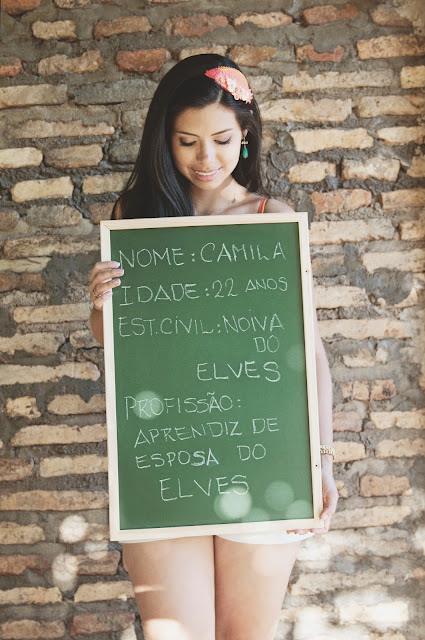 NOME: CAMILA
IDADE: 22 ANOS
EST. CIVIL: NOIVA
DO
ELVES
PROFISSÃO:
APRENDIZ DE
ESPOSA DO
ELVES